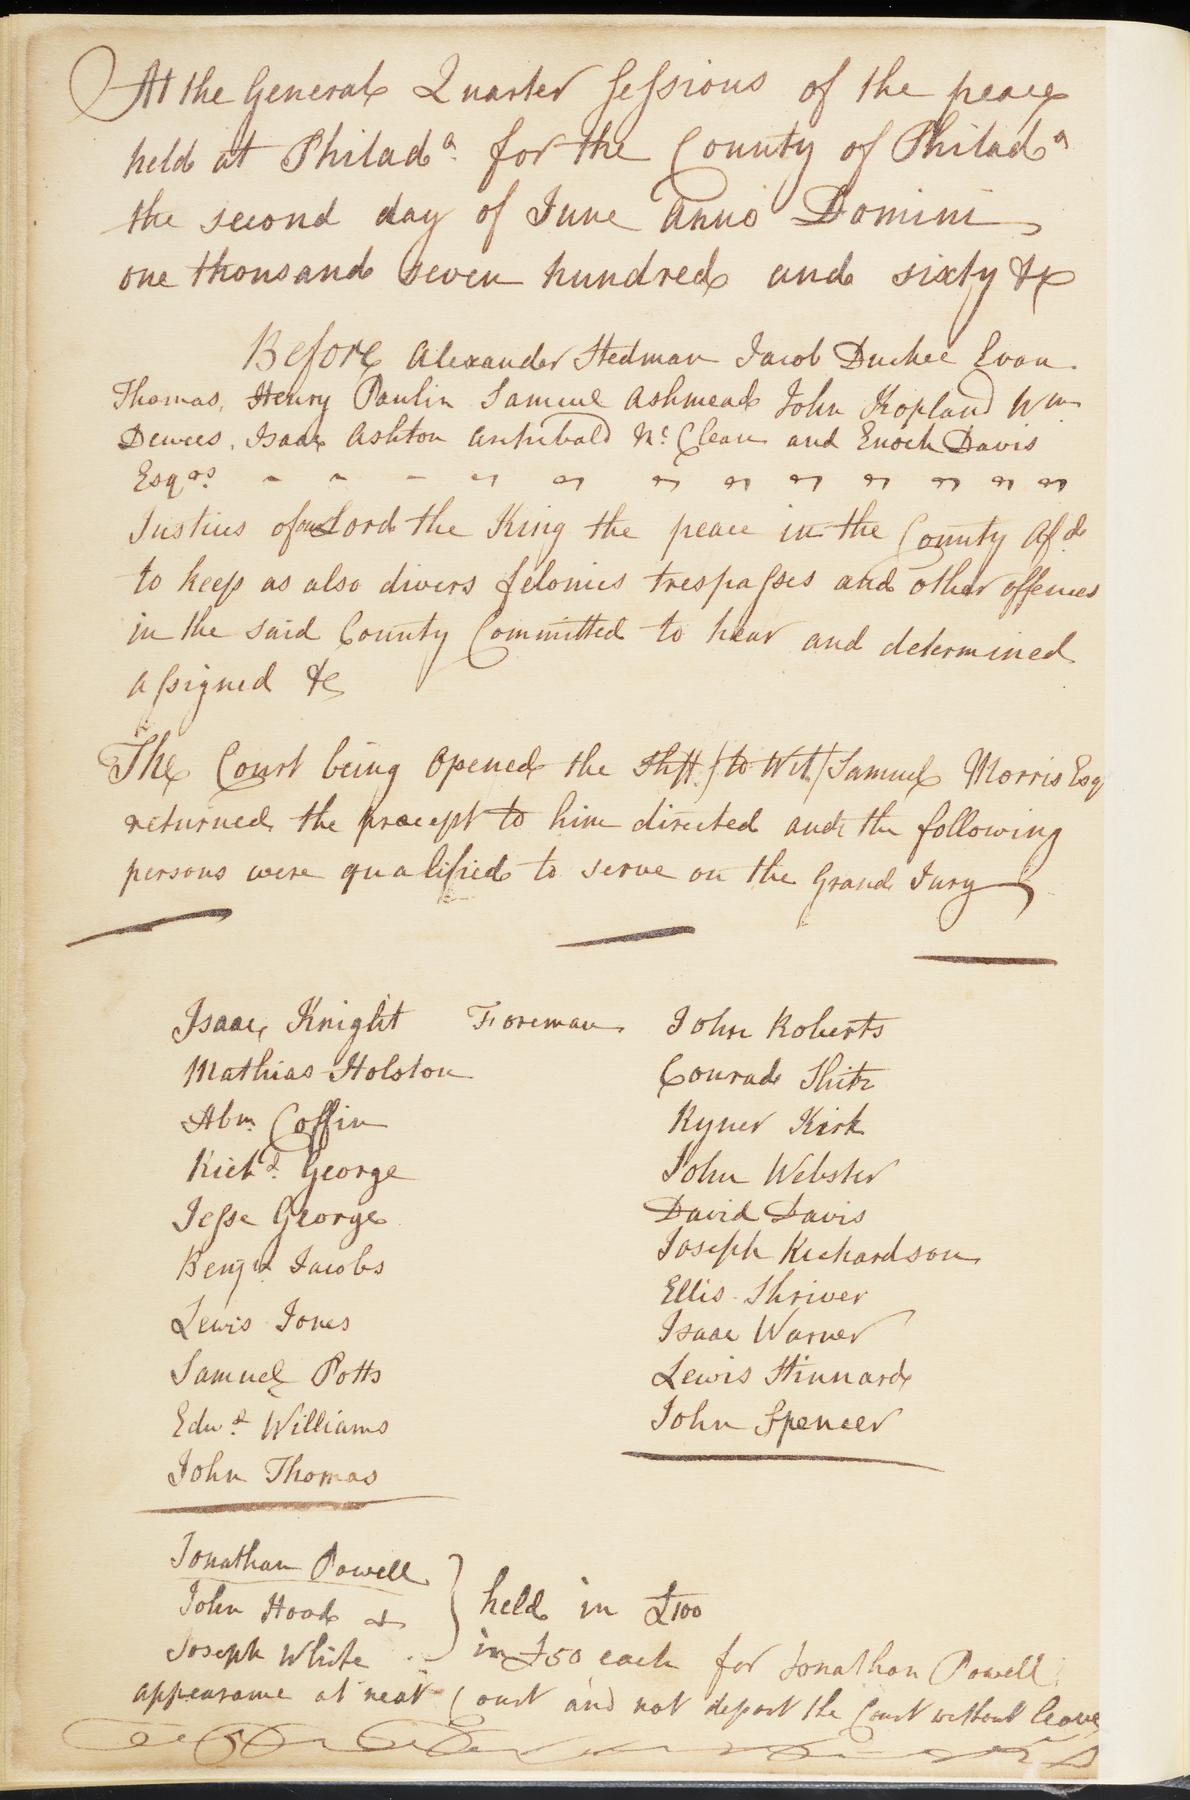 At the General Quarter Sessions of the peace
held at Philad.a for the County of Philad.a
the second day of June Anno Domini
one thousand seven hundred and sixty &c
Before Alexander Stedman Jacob Duchee Evan
Thomas, Henry Paulin Samuel Ashmead John Kopland Wm
Dewees, Isaac Ashton Archibald Mc. Clean and Enoch Davis
Esqrs. " " " " " " " " " " " "
Justices of our Lord the King the peace in the County Afsd
to keep as also divers felonies trespasses and other offences
in the said County Committed to hear and determined
assigned &c
The Court being Opened the Shff. / to Wit / Samuel Morris Esq
returned the precept to him directed and the following
persons were qualified to serve on the Grand Jury
Isaac Knight Foreman
Mathias Holston
Abm. Coffin
Richd. George
Jesse George
Benja Jacobs
Lewis Jones
Samuel Potts
Edwd. Williams
John Thomas
John Roberts
Conrad Shitz
Ryner Kirk
John Webster
David Davis
Joseph Richardson
Ellis Shriver
Isaac Warner
Lewis Stinnard
John Spencer
Jonathan Powell
John Hood &
Joseph White
held in £100
in £50 each for Jonathan Powell
appearance at next Court and not depart the Court without leave